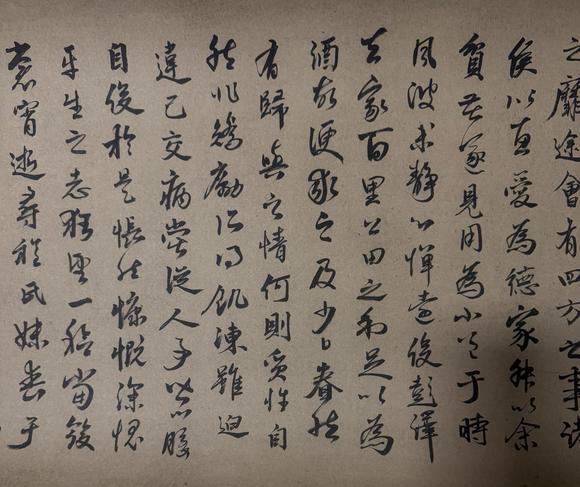 之靡途會有四方之事諸
侯以惠愛為德家叔以余
貧苦遂見用為小邑于時
風波未靜心憚遠役彭澤
去家百里公田之利足以為
酒故便求之及少日眷然
有歸與之情何則質性自
然非矯勵所得飢凍雖迫
違己交病嘗從人事皆口腹
自役於是悵然慷慨深愧
平生之志猶望一稔當斂
裳宵逝尋程氏妹喪于